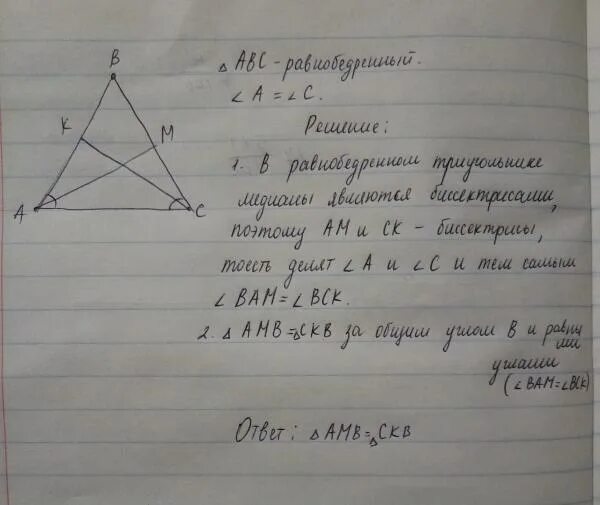 B
△ ABC - равнобедренный.
∠ A = ∠ C.
K
M
Решение:
A
C
1. В равнобедренном триугольнике
медианы являются биссектрисами,
поэтому AM и CK - биссектрисы,
тоесть делят ∠ A и ∠ C и тем самым
∠ BAM = ∠ BCK.
2. △ AMB = △ CKB за общим углом B и равны
ми
углами
(∠ BAM = ∠ BCK)
Ответ: △ AMB = △ CKB